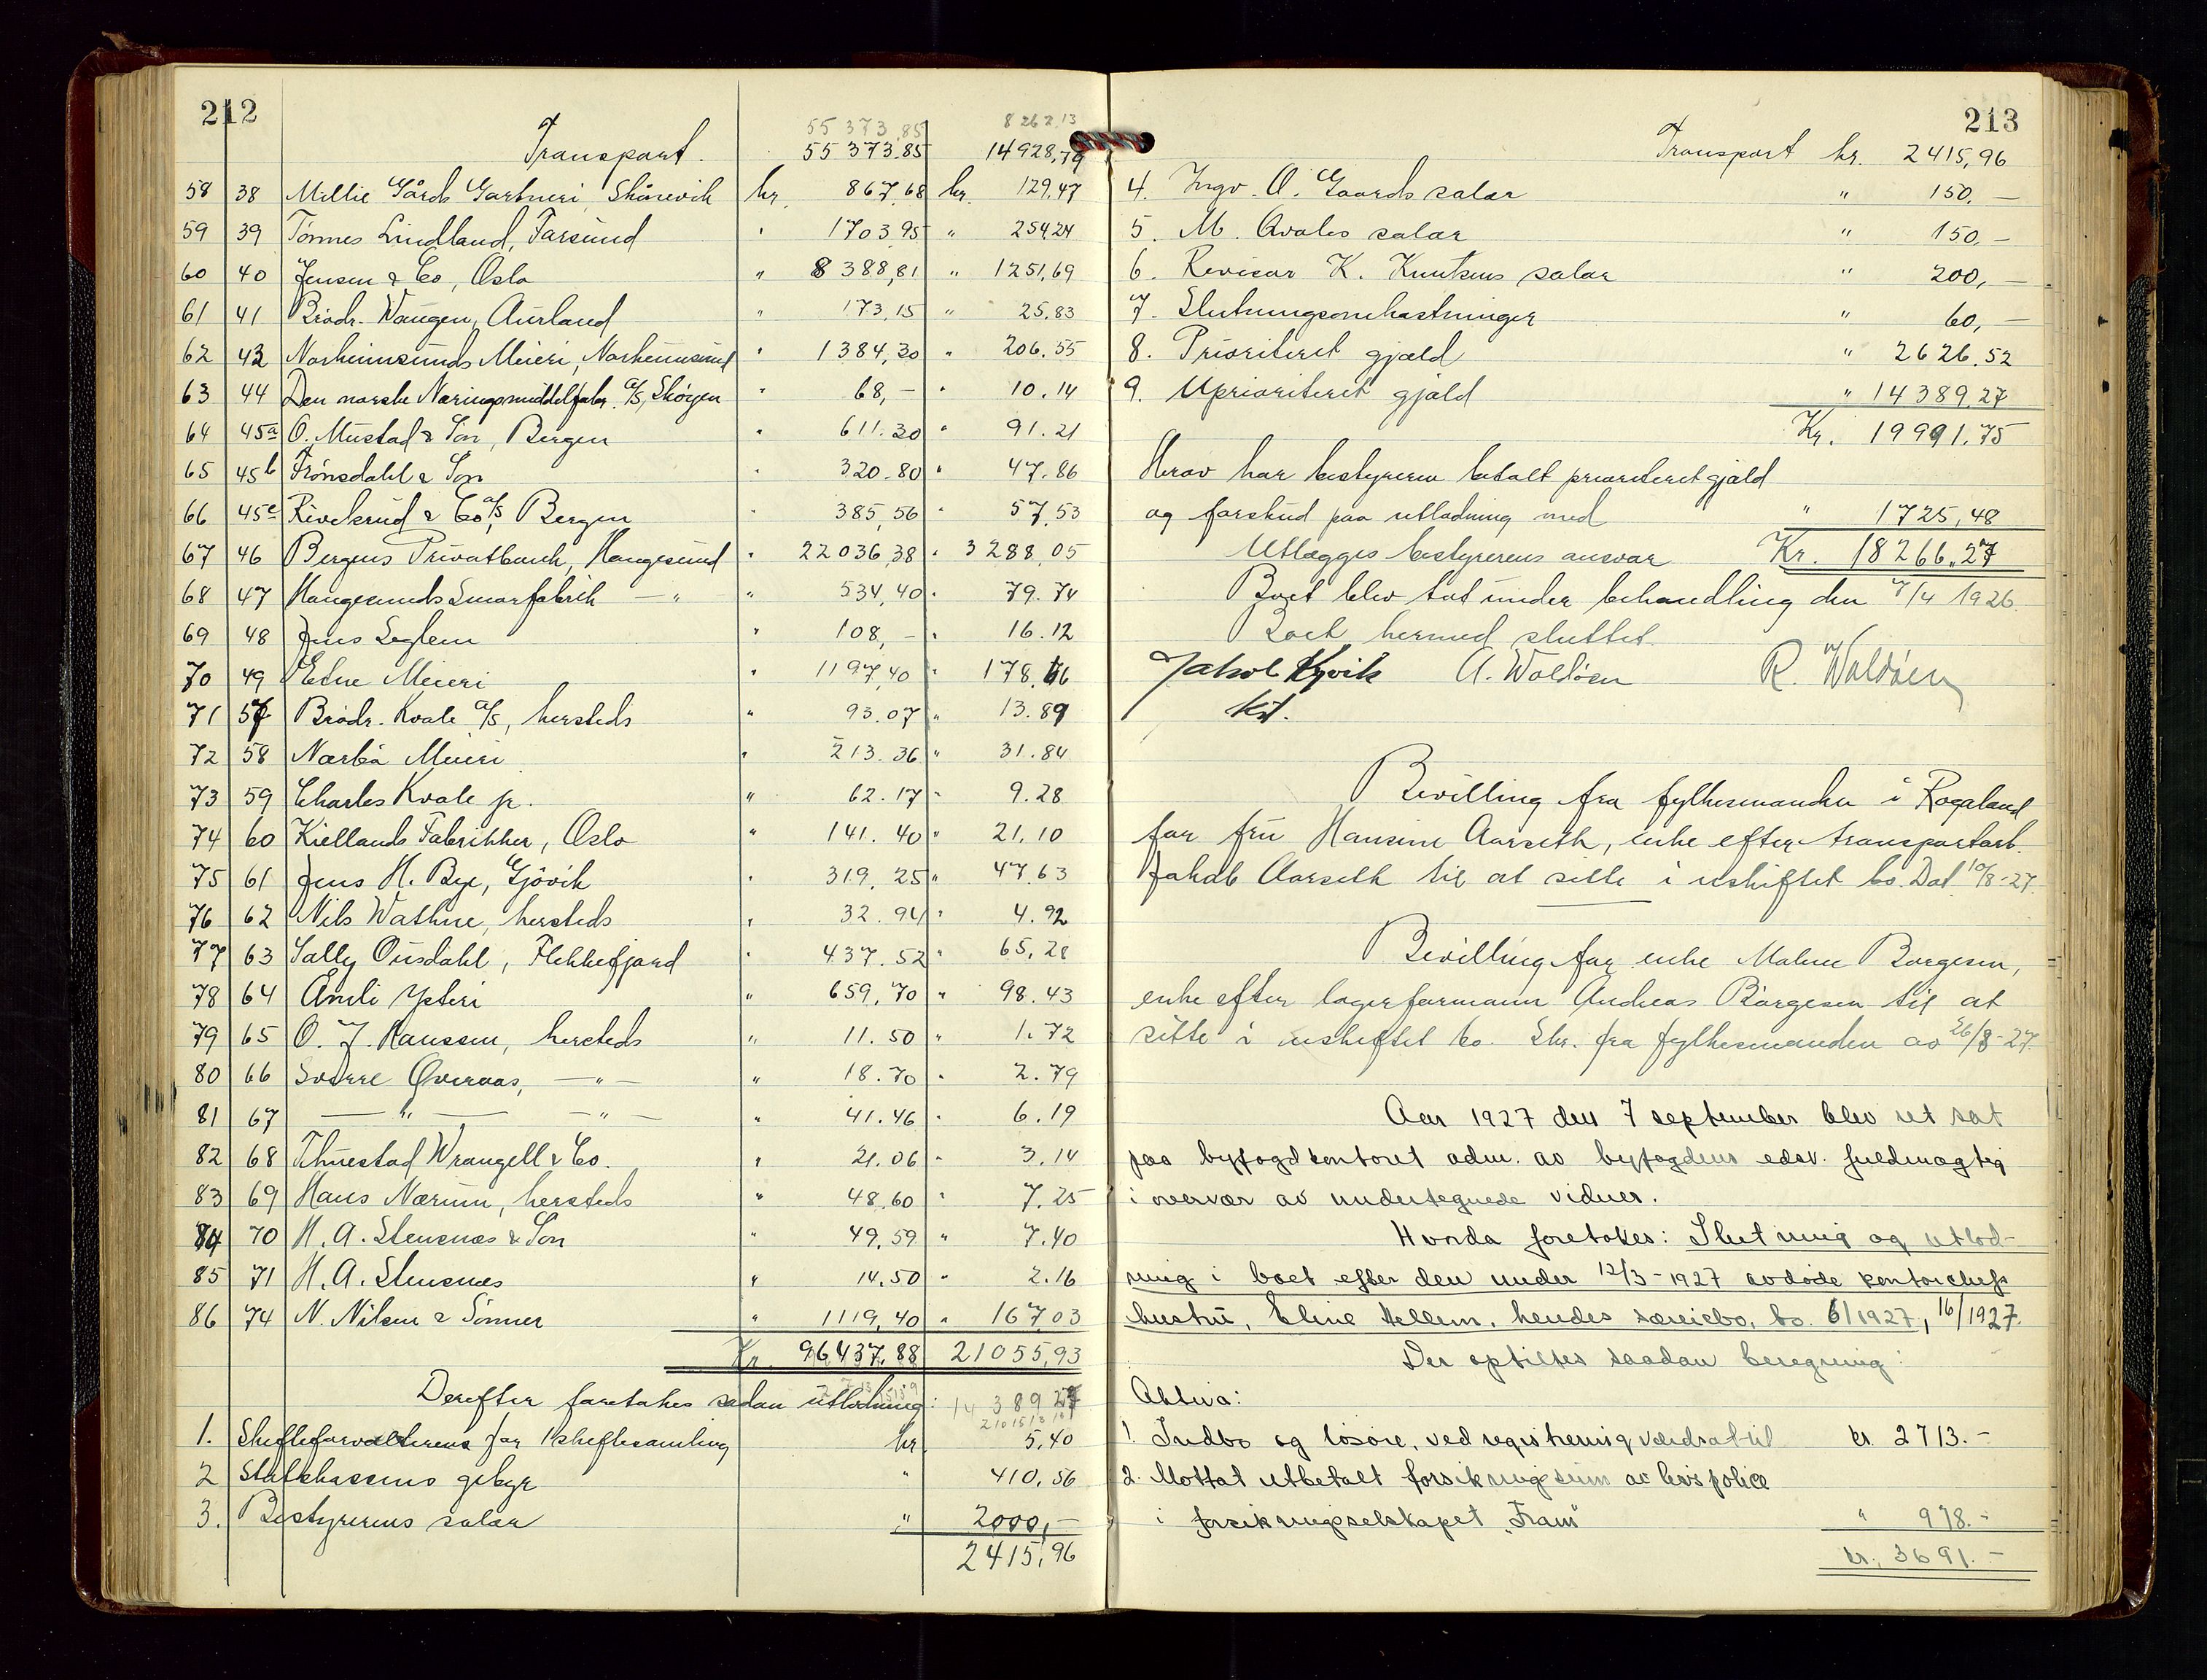 212
55 373.85 8262.13
Transport. 55 373.85 14928,79
58 38 Millie Gårds Gartneri, Skånevik kr. 867,68 kr. 129,47
59 39 Tönnes Lindland, Farsund " 1703.95 " 254.24
60 40 Jensen & Co, Oslo " 8388,81 " 1251,69
61 41 Brødr. Wangen, Aurland " 173,15 " 25.83
62 42 Norheimsunds Meieri, Norheimsund " 1384,30 " 206.55
63 44 Den norske Næringsmiddelfabr. A/S, Skøyen " 68,- " 10.14
64 45a O. Mustad & Søn, Bergen " 611.30 " 91.21
65 45b Trönsdahl & Søn " 320.80 " 47.86
66 45c Rivelsrud & Co A/S, Bergen " 385,56 " 57,53
67 46 Bergens Privatbank, Haugesund " 22036,38 " 3288,05
68 47 Haugesunds Smørfabrik — " " 534,40 " 79.74
69 48 Jens Seglem " 108,- " 16.12
70 49 Edne Meieri " 1197,40 " 178.66
71 57 Brødr. Kvale A/S, hersteds " 93.07 " 13.89
72 58 Nærbö Meieri " 213.36 " 31.84
73 59 Charles Kvale jr. " 62.17 " 9.28
74 60 Kiellands Fabrikker, Oslo " 141.40 " 21.10
75 61 Jens H. Bye, Gjövik " 319,25 " 47.63
76 62 Nils Wathne, hersteds " 32.94 " 4.92
77 63 Sally Ousdahl, Flekkefjord " 437.52 " 65,28
78 64 Åmli Ysteri " 659,70 " 98.43
79 65 O. J. Hanssen, hersteds " 11.50 " 1.72
80 66 Sverre Qvernaas, — " — " 18.70 " 2.79
81 67 — " — — " — " 41.46 " 6.19
82 68 Thuestad Wrangell & Co. " 21.06 " 3.14
83 69 Hans Nærum, hersteds " 48.60 " 7.25
84 70 H. A. Stensnes & Søn " 49,59 " 7.40
85 71 H. A. Stensnes " 14.50 " 2.16
86 74 N. Nilsen & Sønner " 1119,40 " 167.03
Kr. 96437,88 21055,93
Derefter foretokes sådan utlodning: 14 389 27
1. Skifteforvalterens for 1 skiftesamling kr. 5,40
2 Statskassens gebyr " 410,56
3. Bestyrerens salær " 2000,-
2415,96
213
Transport kr. 2415,96
4. Ingv. O. Gaards salær " 150.—
5. M. Kvales salær " 150,—
6. Revisor K. Knutsens salær " 200,—
7. Slutningsomkostninger " 60,—
8. Prioriteret gjæld " 2626.52
9. Uprioriteret gjæld " 14389.27
Kr. 19991.75
Herav har bestyreren betalt prioriteret gjæld
og forskud paa utlodning med " 1725,48
Utlægges bestyrerens ansvar Kr. 18266.27
Boet blev tat under behandling den 7/4 1926.
Boet hermed sluttet.
Jakob Kyvik A. Waldóen R. Waldóen
kst.
Bevilling fra fylkesmanden i Rogaland
for fru Hansine Aarseth, enke efter transportarb.
Jakob Aarseth til at sitte i uskiftet bo. Dat. 10/8-27.
Bevilling for enke Malene Børgesen,
enke efter lagerformann Andreas Børgesen til at
sitte i uskiftet bo. Skr. fra fylkesmanden av 26/8-27.
Aar 1927 den 7 september blev ret sat
paa byfogdkontoret adm. av byfogdens edsv. fuldmægtig
i overvær av undertegnede vidner.
Hvorda foretokes: Slutning og utlod-
ning i boet efter den under 12/3-1927 avdøde kontorchefs
hustru, Eline Hellem, hendes særeiebo, bo. 6/1927, 16/1927.
Der opstilles saadan beregning:
Aktiva:
1. Indbo og løsøre, ved registrering værdsat til kr. 2713.-
2. Mottat utbetalt forsikringssum av livspolice
i forsikringsselskapet "Fram" " 978.-
kr. 3691.-